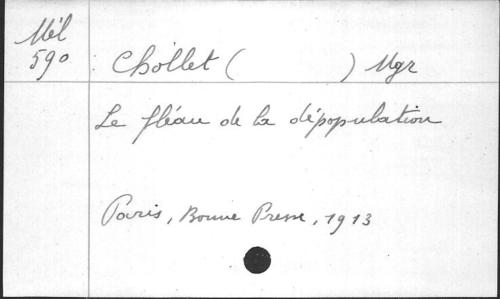 Mél
590
Chollet (          ) Mgr
Le fléau de la dépopulation
Paris, Bonne Presse, 1913